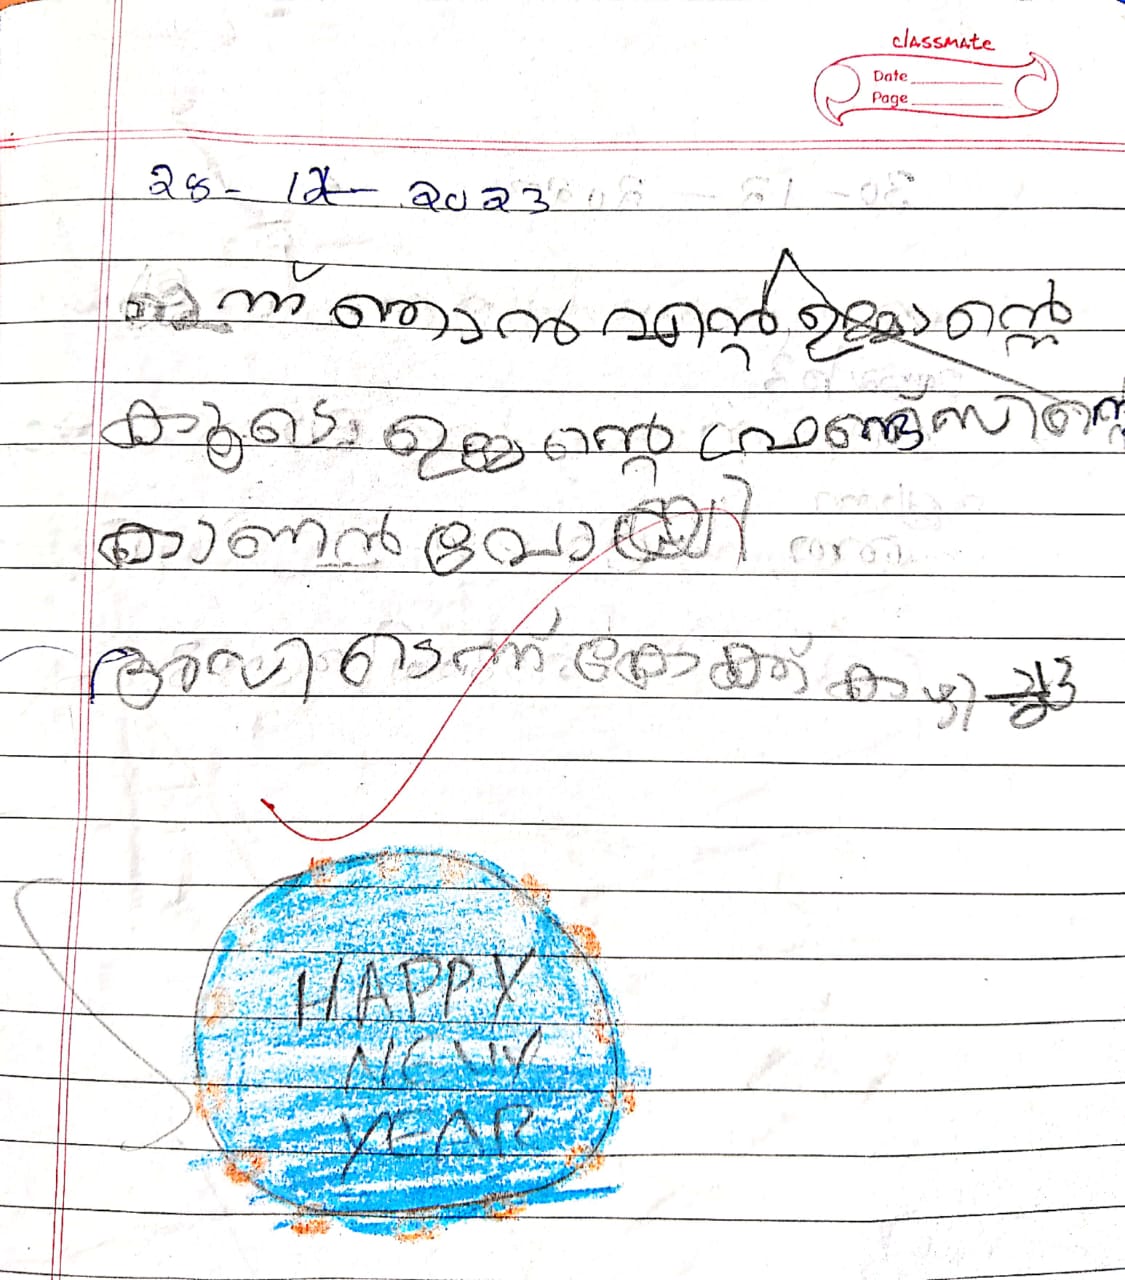 classmate
Date
Page
28-12-2023
ഇന്ന് ഞാൻ എന്റെ ഉമ്മാന്റെ
കൂടെ ഉമ്മന്റെ ഫ്രണ്ട്സിന്റെ
കാണൻ പോയി
അവിടെന്ന് കേക്ക് കഴിച്ചു
HAPPY
NEW
YEAR